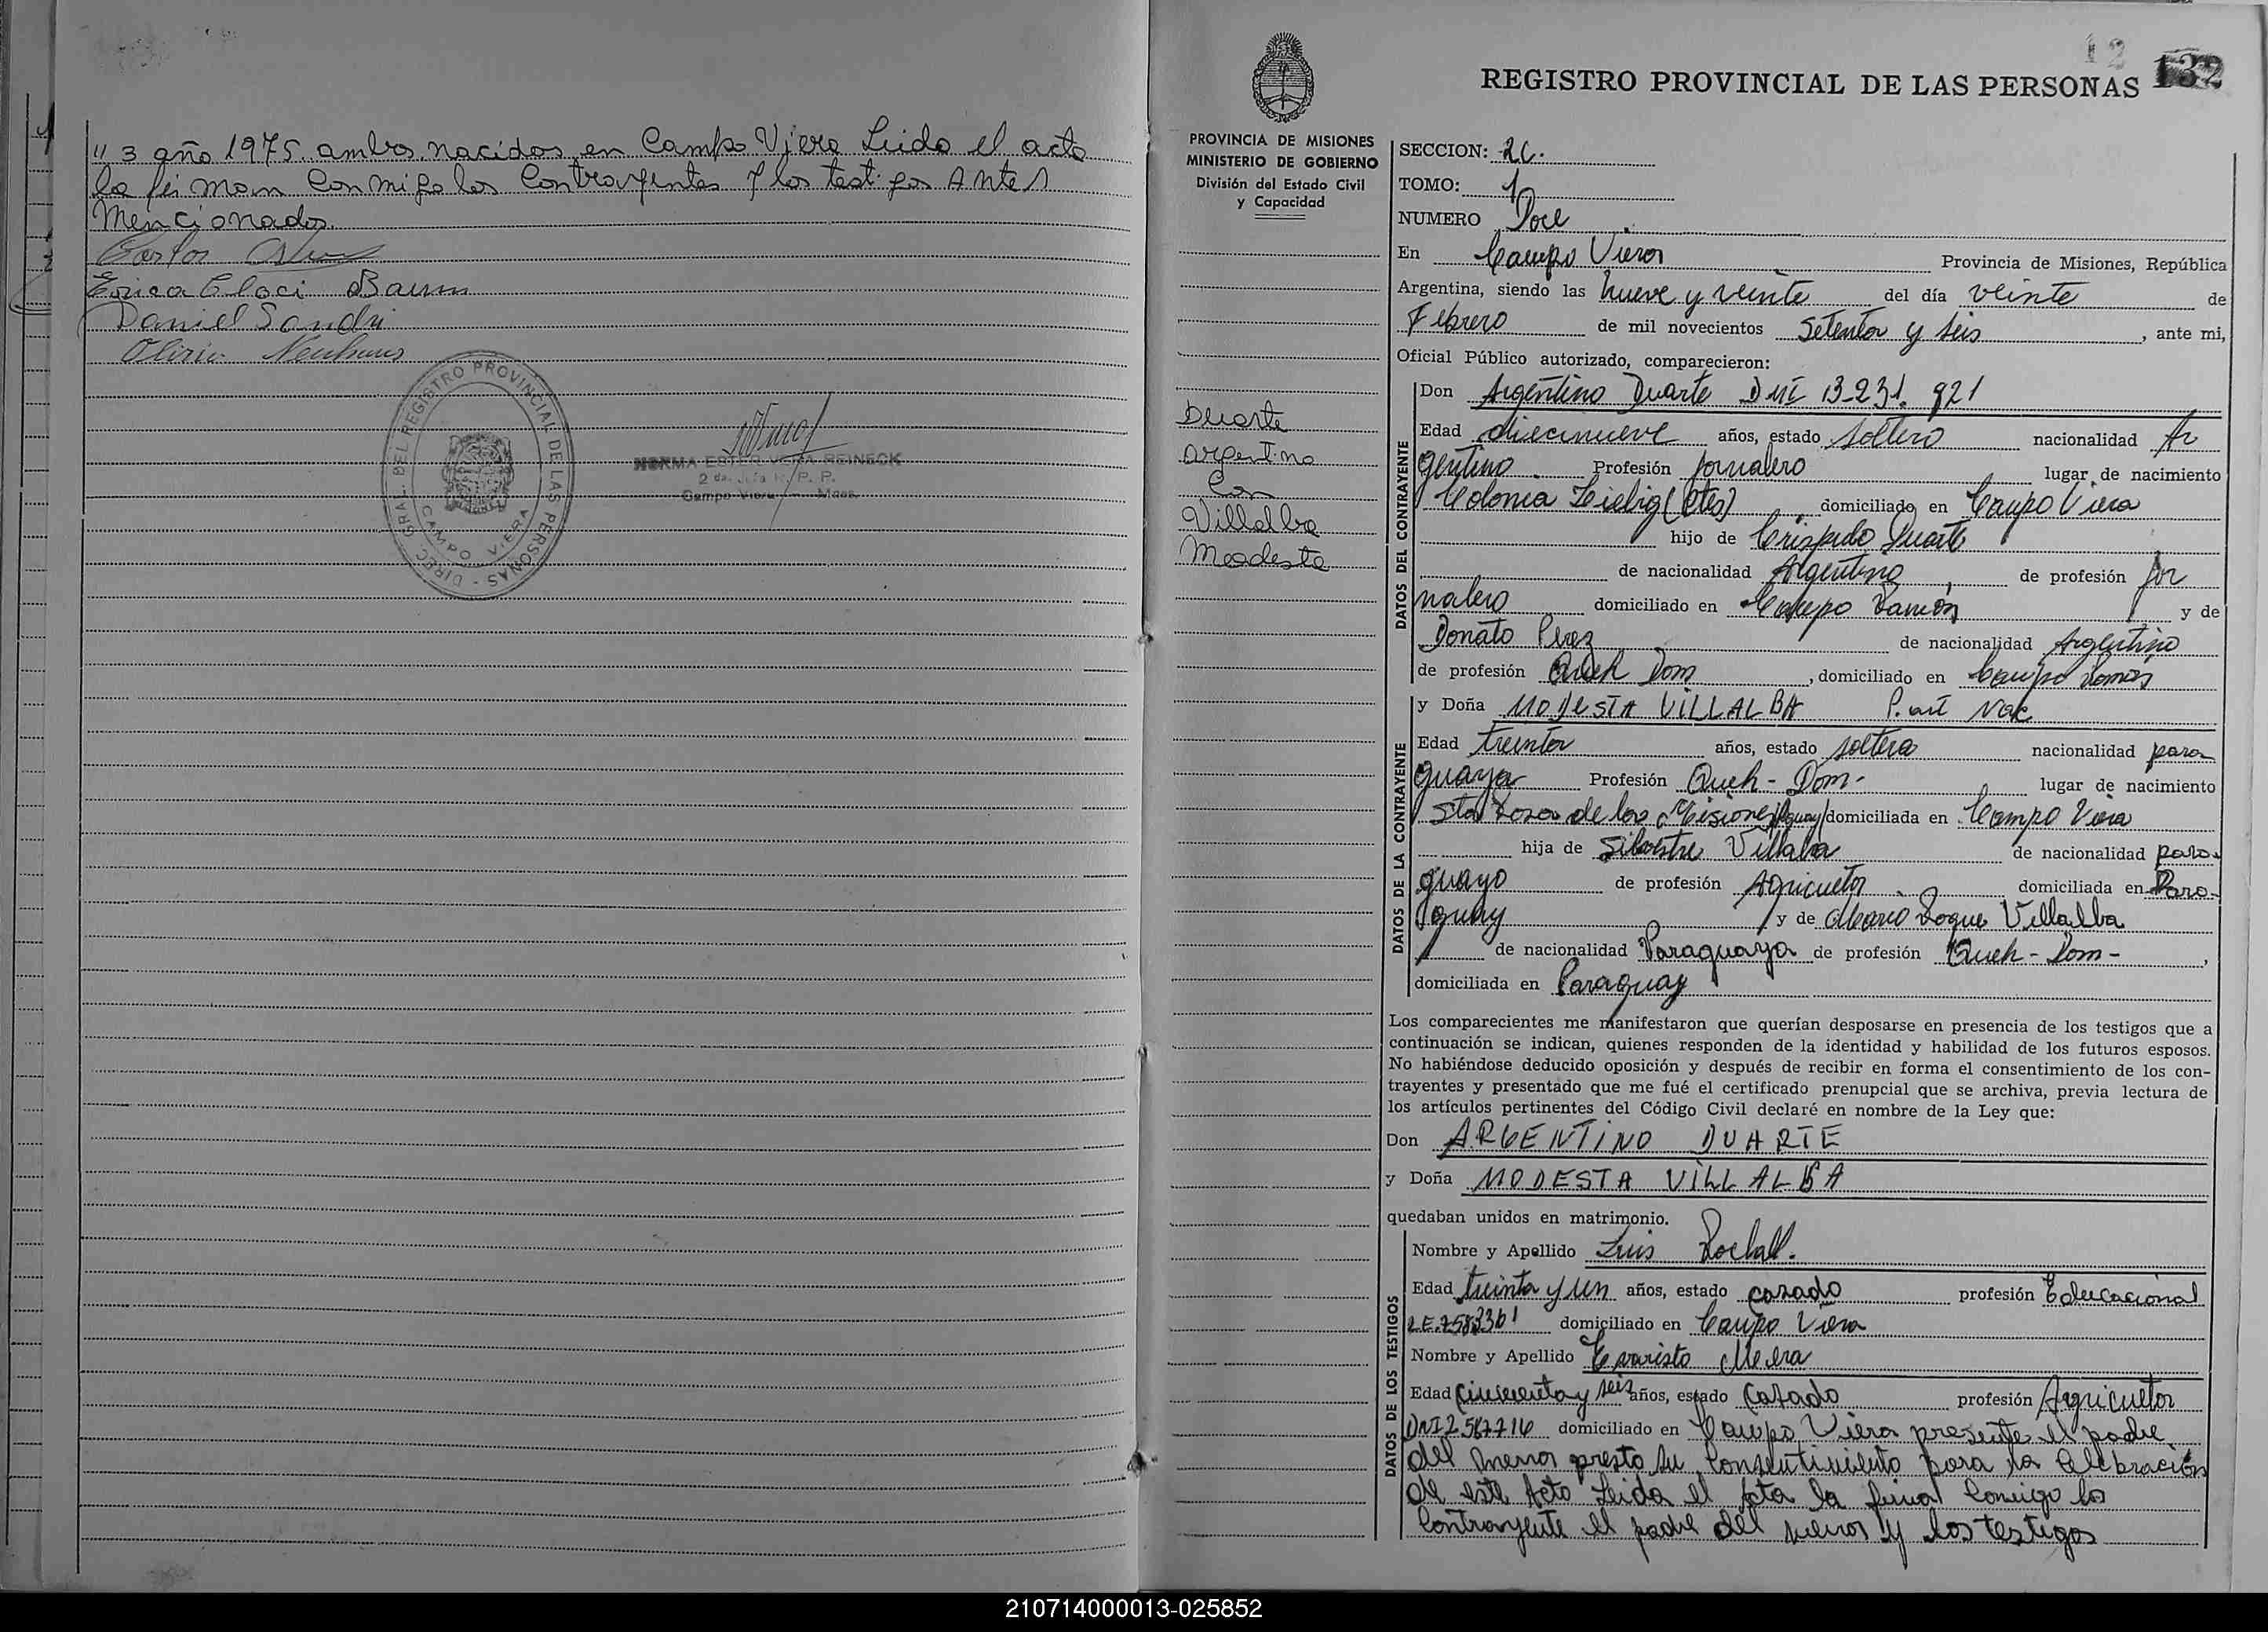 " 3 año 1975. ambos nacidos en Campo Viera Leida el acta
la firman conmigo los Contrayentes y los testigos Antes
Mencionados.
Carlos
Erica Claci Baum
Daniel Sandri
Olirio Neuhaus
DIREC. GRAL. DEL REGISTRO PROVINCIAL DE LAS PERSONAS -
CAMPO VIERA
NORMA ESTER VERA REINECK
2 da. Jefa R. P. P.
Campo Viera Mnes.
12
132
REGISTRO PROVINCIAL DE LAS PERSONAS
PROVINCIA DE MISIONES
MINISTERIO DE GOBIERNO
División del Estado Civil
y Capacidad
Duarte
Argentino
Con
Villalba
Modesta
SECCION: 2C.
TOMO: 1
NUMERO Doce
En Campo Viera Provincia de Misiones, República
Argentina, siendo las nueve y veinte del día veinte de
Febrero de mil novecientos Setenta y seis, ante mi,
Oficial Público autorizado, comparecieron:
DATOS DEL CONTRAYENTE
Don Argentino Duarte DNI 13.231.921
Edad diecinueve años, estado soltero nacionalidad Ar
gentino Profesión Jornalero lugar de nacimiento
Colonia Liebig (Ctes), domiciliado en Campo Viera
hijo de Crispulo Duarte
de nacionalidad Argentino, de profesión Jor
nalero domiciliado en Campo Ramón y de
Donato Perez de nacionalidad Argentino
de profesión Queh Dom, domiciliado en Campo Ramón
DATOS DE LA CONTRAYENTE
y Doña MODESTA VILLALBA P. art Nac
Edad treinta años, estado soltera nacionalidad para
guaya Profesión Queh - Dom - lugar de nacimiento
Sta Rosa de las Misiones/Pguay/domiciliada en Campo Viera
hija de Silvestre Villalba de nacionalidad para-
guayo de profesión Agricultor domiciliada en Para-
guay y de Maria Roque Villalba
de nacionalidad Paraguaya de profesión Queh - Dom -,
domiciliada en Paraguay
Los comparecientes me manifestaron que querían desposarse en presencia de los testigos que a
continuación se indican, quienes responden de la identidad y habilidad de los futuros esposos.
No habiéndose deducido oposición y después de recibir en forma el consentimiento de los con-
trayentes y presentado que me fué el certificado prenupcial que se archiva, previa lectura de
los artículos pertinentes del Código Civil declaré en nombre de la Ley que:
Don ARGENTINO DUARTE
y Doña MODESTA VILLALBA
quedaban unidos en matrimonio.
DATOS DE LOS TESTIGOS
Nombre y Apellido Luis
Edad treinta y un años, estado casado profesión Educacional
L.E. 7583361 domiciliado en Campo Viera
Nombre y Apellido Evaristo
Edad cincuenta y seis años, estado Casado profesión Agricultor
DNI 2.587.716 domiciliado en Campo Viera presente el padre
del menor presto su Consentimiento para la Celebración
de este Acto Leida el Acta la firman Conmigo los
Contrayente el padre del menor y los testigos
210714000013-025852